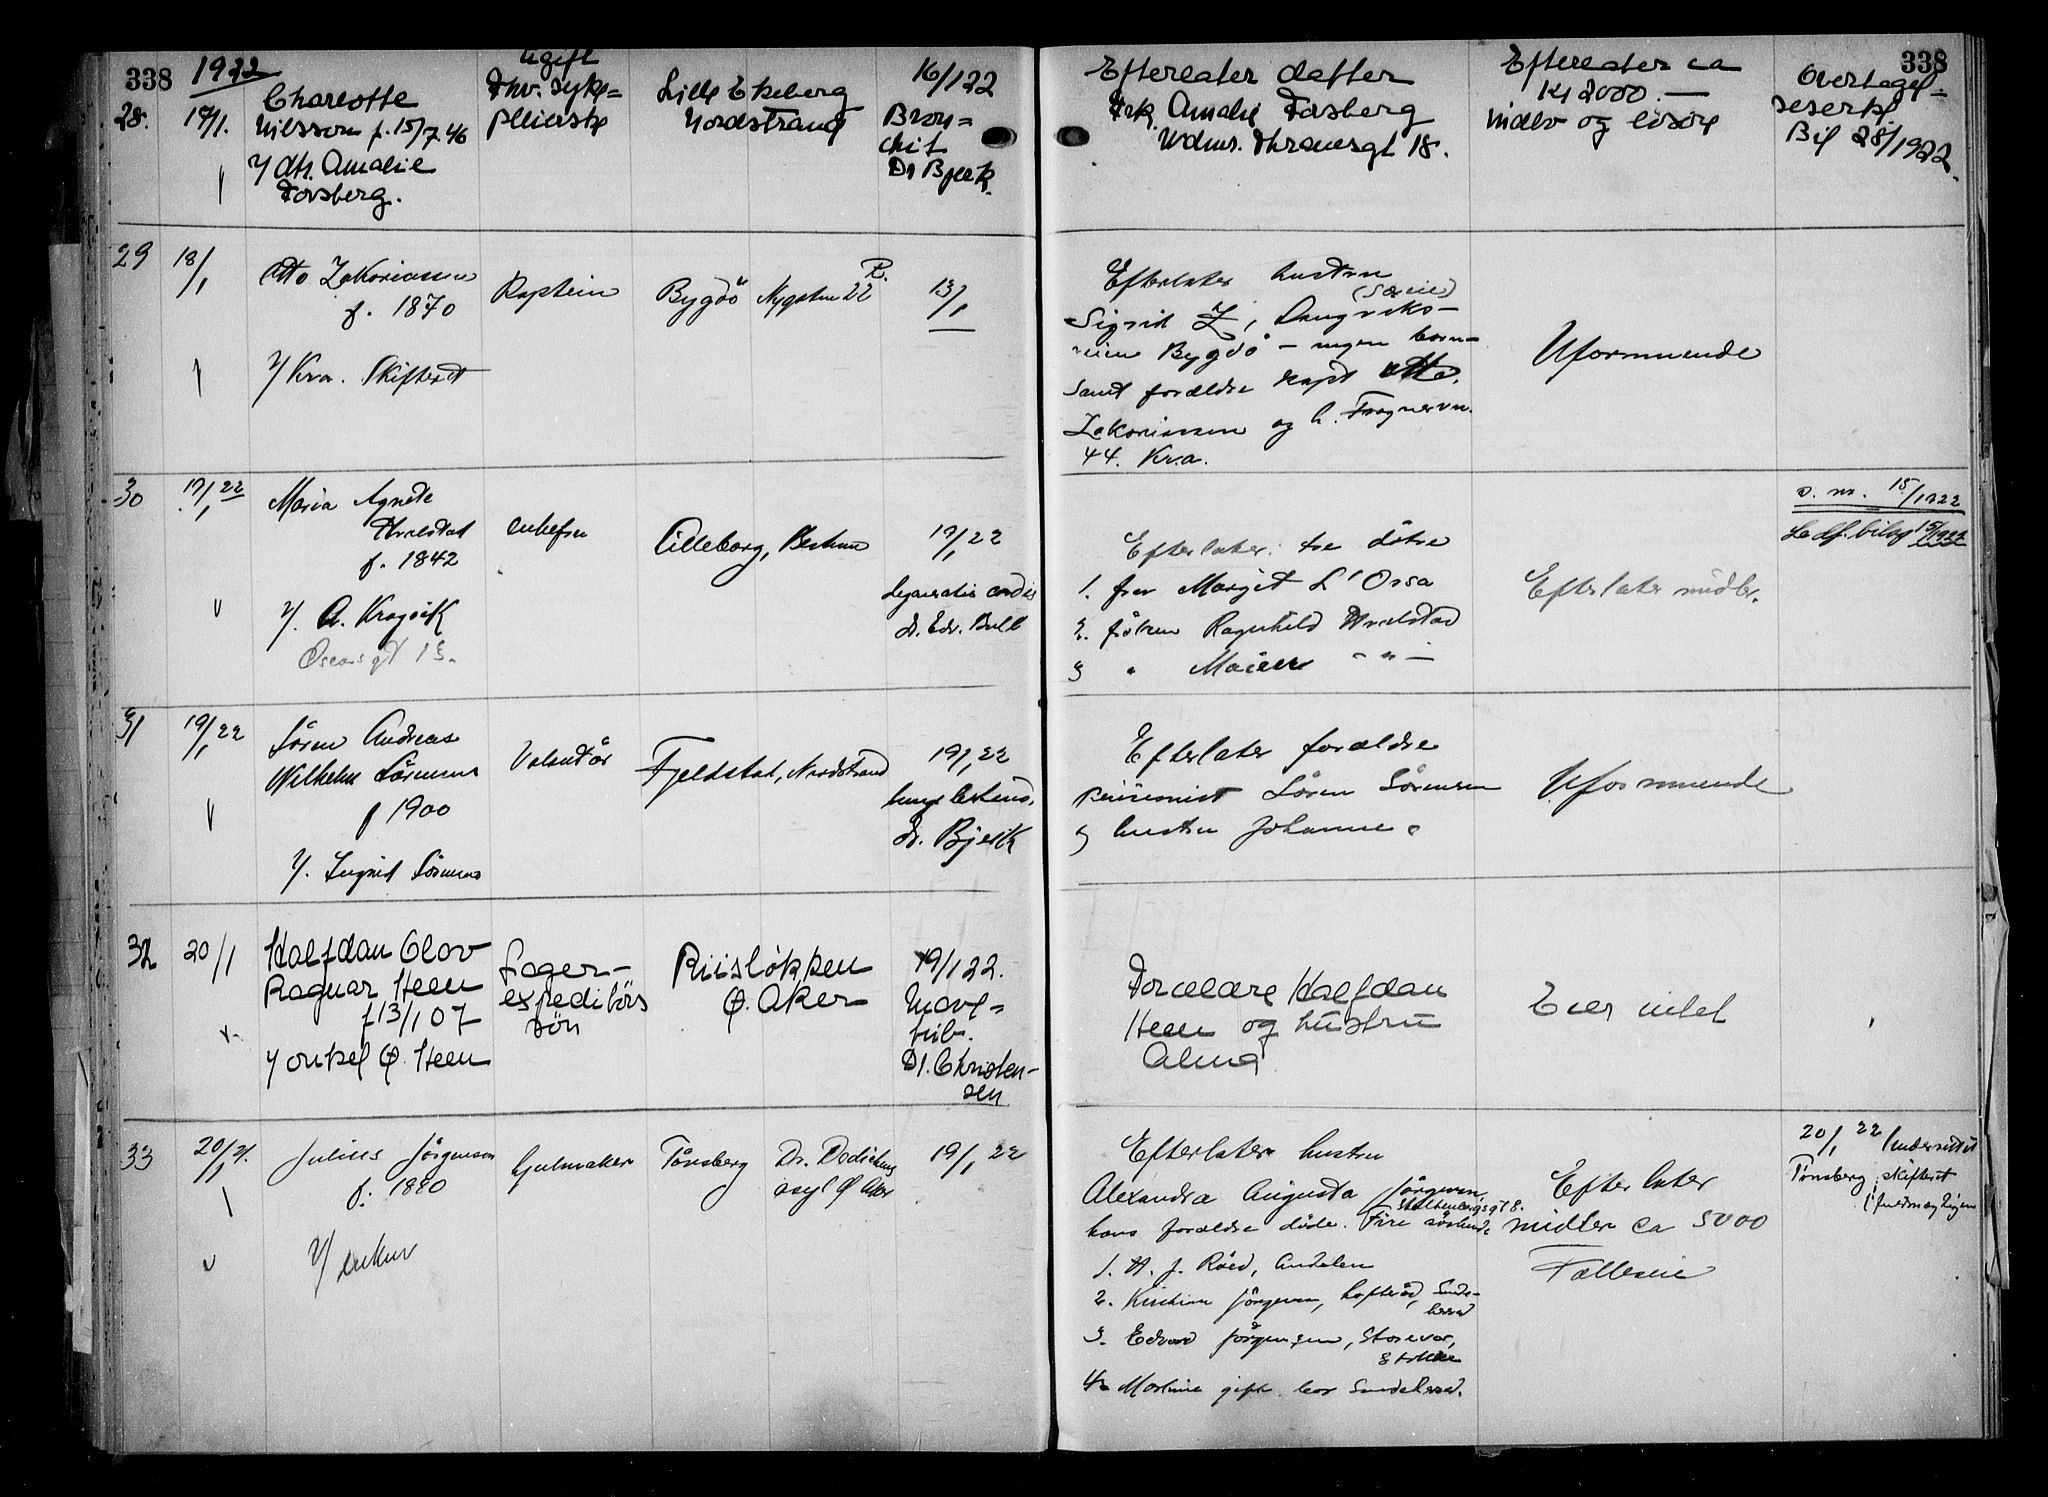 338
1922
338
28.
17/1.
Charlotte
Nilsson f. 15/7 46
v/ dtr. Amalie
Forsberg.
Ugift
Fhv. syke=
pleierske
Lille Ekeberg
Nordstrand
16/1 22
Bron=
chit
Dr Bjerk.
Efterlater datter
Frk. Amalie Forsberg
Thranesgt 18.
Efterlater ca
Kr 2000.—
indbo og løsøre
Overtagel=
seserkl
Bil 28/1922.
29
18/1
Otto Zakariassen
f. 1870
v/ Kra. Skifteret
Kaptein
Bygdö
22
13/1
Efterlater hustru
(Særeie)
Sigrid Z,
Bygdö – ingen barn –
samt forældre kapt Otto
Zakariassen og h. Frognervn.
44. Kr.a.
Uformuende
30
17/1 22
Maria Agnete
Hvalstad
f. 1842
v/. A. Kragvik
Oscarsgt 13.
enkefru
Lilleborg, Bestum
17/1 22
degeneratio cordis
dr. Edv. Bull
Efterlater: tre døtre
1. fru Margit L'Orsa
2. frøken Ragnhild Hvalstad
3 " – " –
Efterlater midler.
s. nr. 15/1922
31
19/1 22
Sören Andreas
Wilhelm Sörensen
f 1900
v/. Ingrid Sörensen
Volontör
Fjeldstad, Nordstrand
19/1 22
dr. Bjerk
Efterlater forældre
pensionist Sören Sörensen
og hustru Johanne.
Uformuende
32
20/1
Halfdan Olav
Ragnar Heen
f 13/1 07
v/ onkel O. Heen
Lager-
expeditørs
søn
Riisløkken
Ø. Aker
19/1 22.
Mave=
tub.
Dr. Christen-
sen
Forældre Halfdan
Heen og hustru
Alma
Eier intet
33
20/1
Julius Jörgensen
f. 1880
v/ enken
hjulmaker
Tönsberg
Dr. Dedichens
asyl Ø Aker
19/1 22
Efterlater hustru
Alexandra Augusta Jörgensen,
Stoltenbergsgt 8.
hans forældre döde. Fire söskende
1. A. J. Röed,
2. Kristian Jörgensen,
3. Edvard Jörgensen,
Stokke
4. gift
Efterlater
midler ca 5000
Fælleseie
20/1 22 Underrettet
Tönsberg skifteret